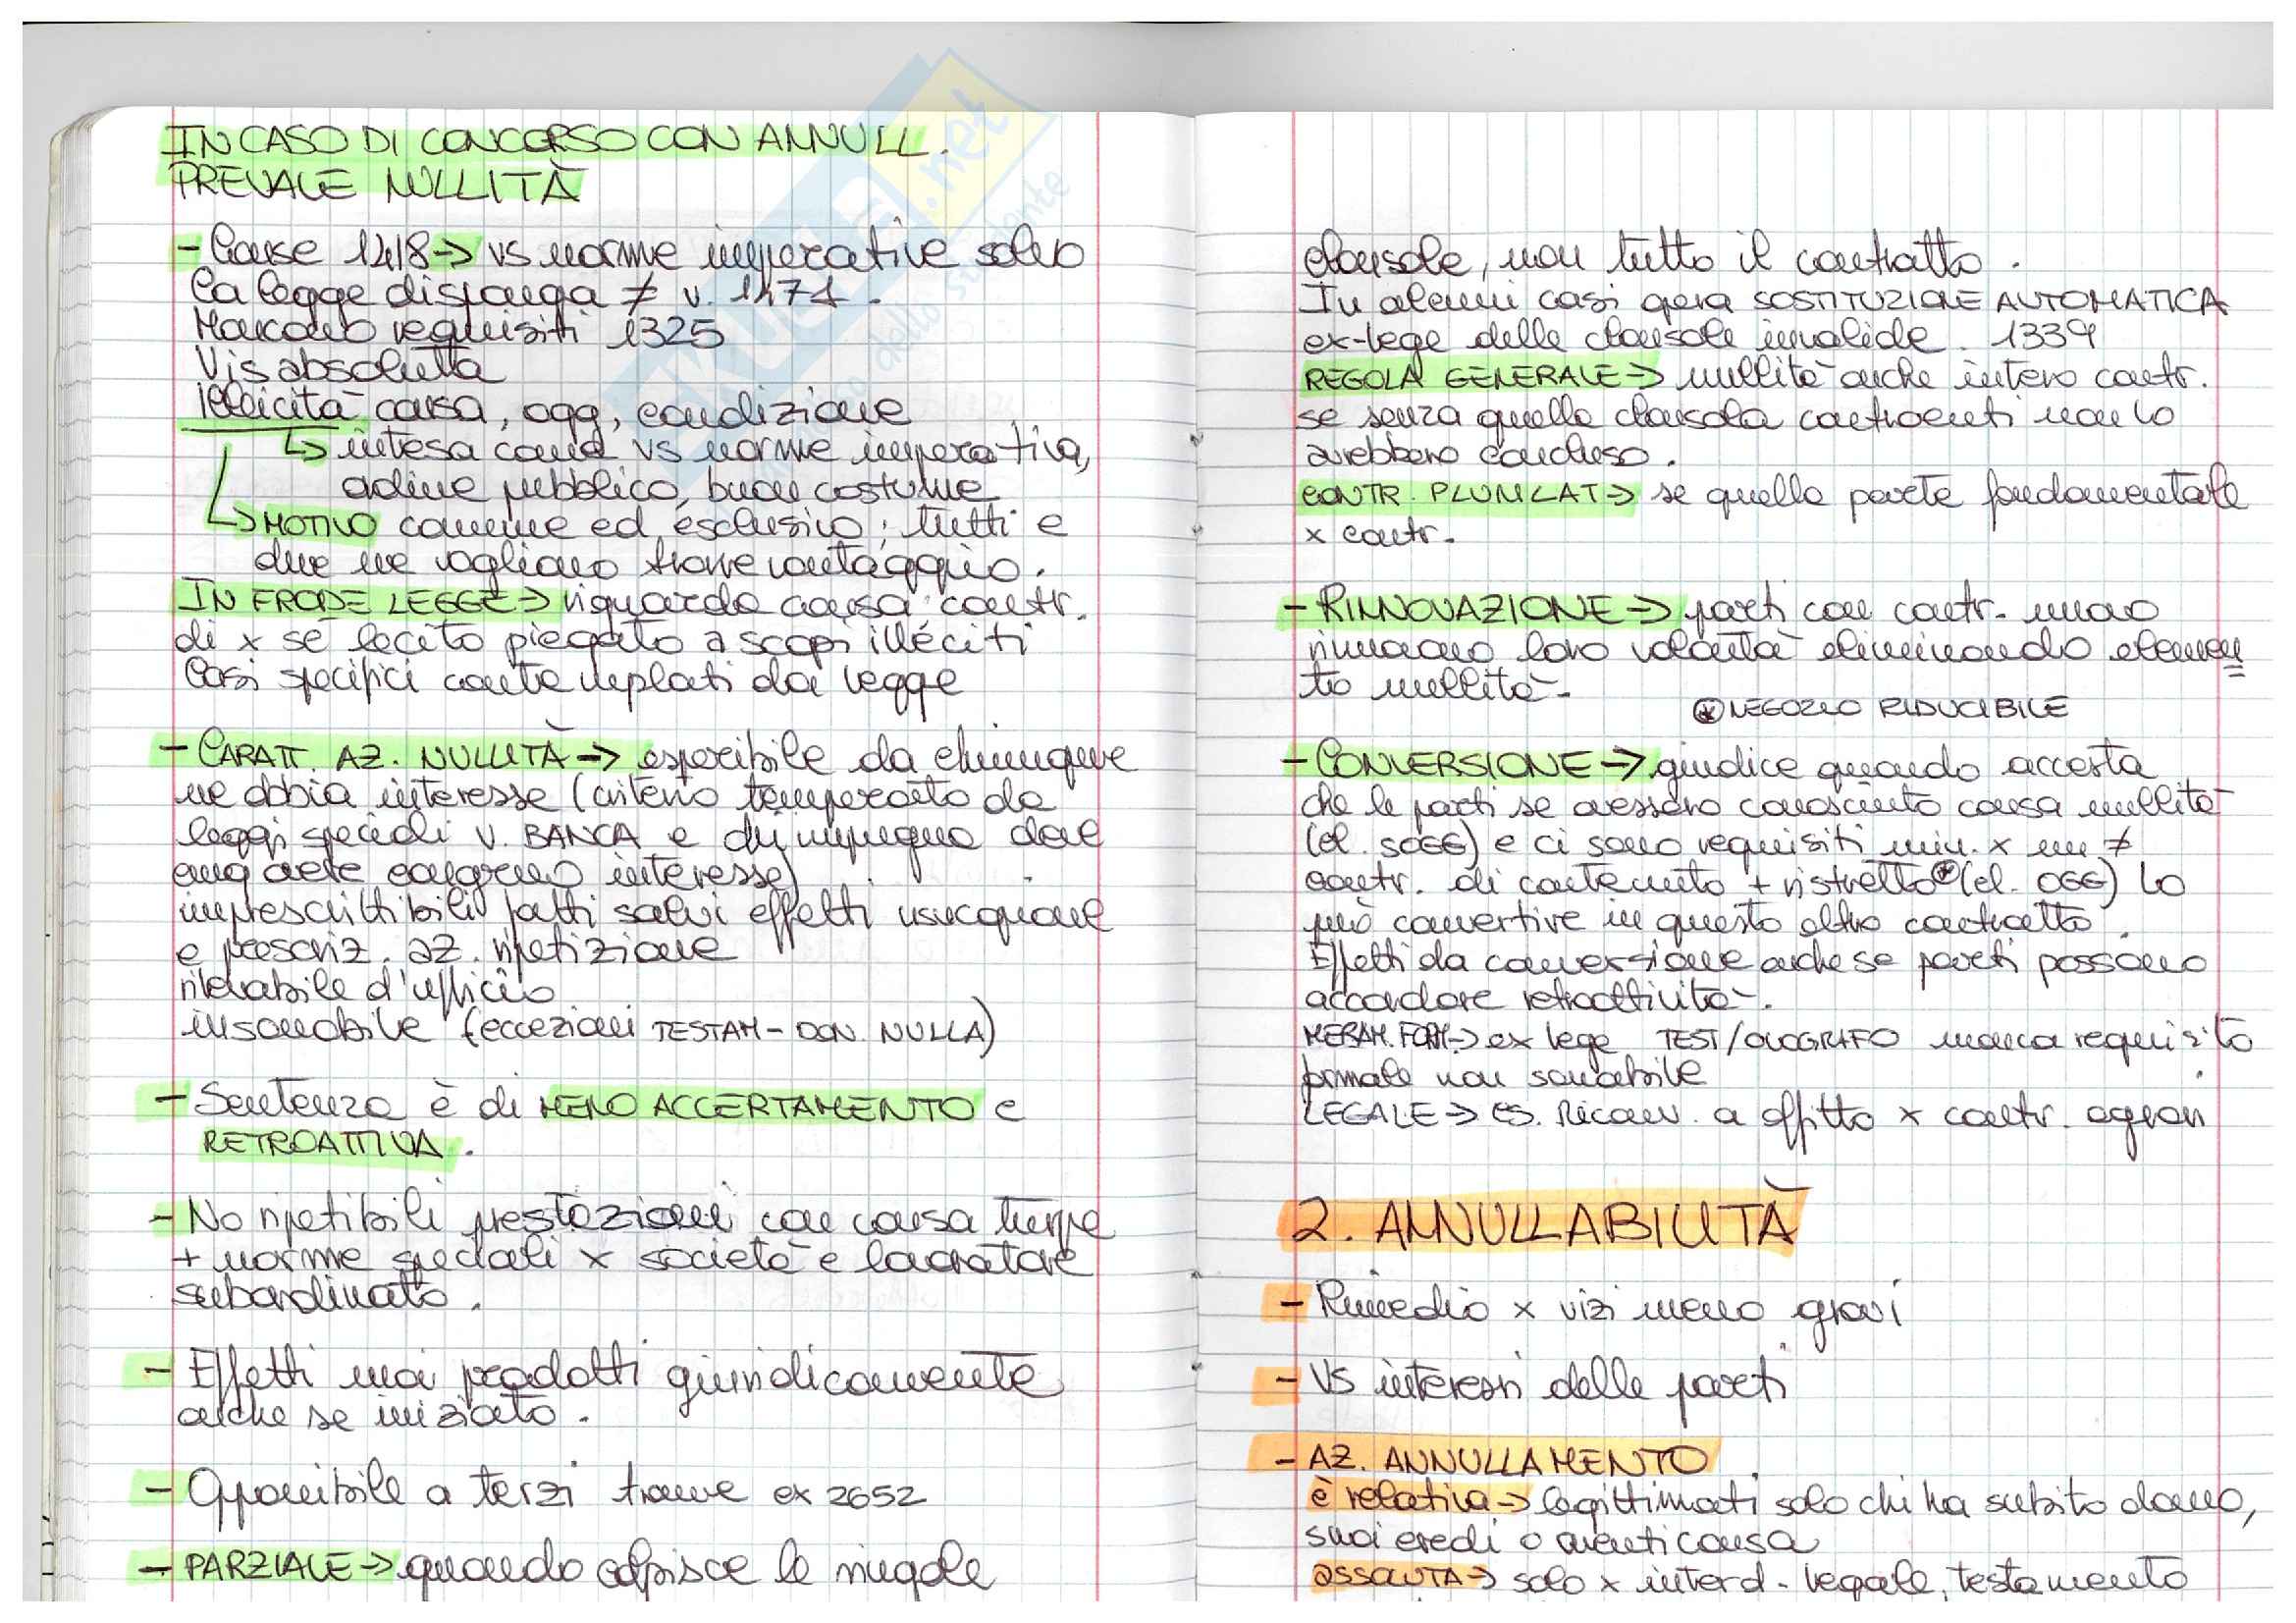 IN CASO DI CONCORSO CON ANNULL.
PREVALE NULLITÀ
- Cause 1418 → vs norme imperative salvo
la legge disponga ≠ v. 1471.
Mancano requisiti 1325
Vis absoluta
Illiceità causa, ogg, condizione
↳ intesa come vs norme imperativa,
ordine pubblico, buon costume
↳ MOTIVO comune ed esclusivo; tutti e
due ne vogliono trarre vantaggio.
IN FRODE LEGGE → riguarda causa: contr.
di x sé lecito piegato a scopi illeciti
Casi specifici contemplati da legge
- CARATT. AZ. NULLITÀ → esperibile da chiunque
ne abbia interesse (criterio temperato da
leggi speciali V. BANCA e
interesse)
imprescrittibili fatti salvi effetti usucapione
e prescriz. az. ripetizione
rilevabile d'ufficio
insanabile (eccezioni TESTAM - DON. NULLA)
- Sentenza è di MERO ACCERTAMENTO e
RETROATTIVA.
- No ripetibili prestazioni con causa turpe
+ norme speciali x società e lavoratore
subordinato.
- Effetti mai prodotti giuridicamente
anche se iniziato.
- Opponibile a terzi tranne ex 2652
- PARZIALE → quando colpisce le singole
clausole, non tutto il contratto.
In alcuni casi opera SOSTITUZIONE AUTOMATICA
ex-lege delle clausole invalide. 1339
REGOLA GENERALE → nullità anche intero contr.
se senza quella clausola contraenti non lo
avrebbero concluso.
CONTR. PLURILAT → se quella parte fondamentale
x contr.
- RINNOVAZIONE → parti con contr. nuovo
rinnovano loro volontà eliminando elemen
to nullità.
⊛ NEGOZIO RIDUCIBILE
- CONVERSIONE → giudice quando accerta
che le parti se avessero conosciuto causa nullità
(el. SOGG) e ci sono requisiti min. x un ≠
contr. di contenuto + ristretto ⊛ (el. OGG) lo
può convertire in questo altro contratto.
Effetti da conversione anche se parti possono
accordare retroattività.
MERAM. FORM → ex lege TEST/OLOGRAFO manca requisito
formale non sanabile.
LEGALE → es. riconv. a affitto x contr. agrari
2. ANNULLABILITÀ
- Rimedio x vizi meno gravi
- Vs interessi delle parti
- AZ. ANNULLAMENTO
è relativa → legittimati solo chi ha subito danno,
suoi eredi o aventi causa
assoluta → solo x interd. legale, testamento